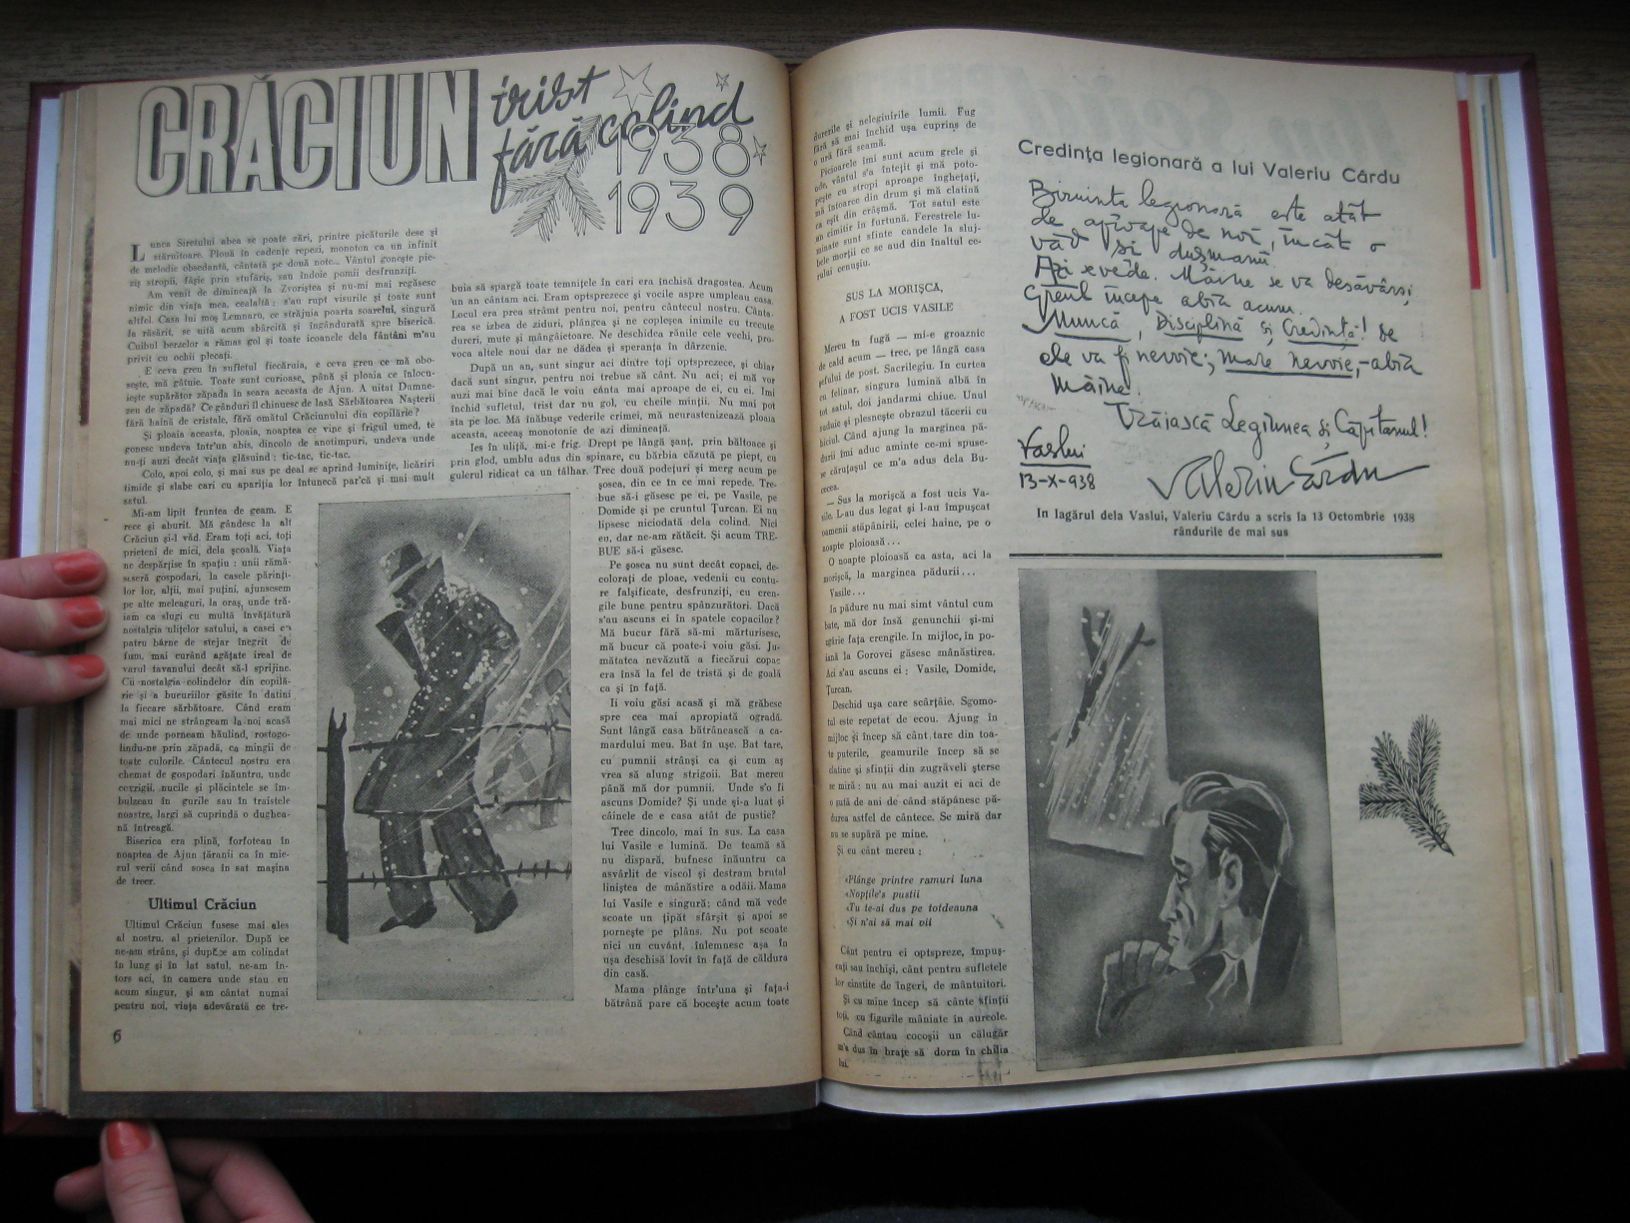 CRĂCIUN trist
fără colind
1938
1939
Lunca Siretului abea se poate zări, printre picăturile dese și
stăruitoare. Plouă în cadențe repezi, monoton ca un infinit
de melodie obsedantă, cântată pe două note... Vântul gonește pie-
ziș stropii, fâșie prin stufăriș, sau îndoie pomii desfrunziți.
Am venit de dimineață la Zvoriștea și nu-mi mai regăsesc
nimic din viața mea, cealaltă: s'au rupt visurile și toate sunt
altfel. Casa lui moș Lemnaru, ce străjuia poarta soarelui, singură
la răsărit, se uită acum sbârcită și îngândurată spre biserică.
Cuibul berzelor a rămas gol și toate icoanele dela fântâni m'au
privit cu ochii plecați.
E ceva greu în sufletul fiecăruia, e ceva greu ce mă obo-
sește, mă gâtuie. Toate sunt curioase, până și ploaia ce înlocu-
iește supărător zăpada în seara aceasta de Ajun. A uitat Dumne-
zeu de zăpadă? Ce gânduri îl chinuesc de lasă Sărbătoarea Nașterii
fără haină de cristale, fără omătul Crăciunului din copilărie?
Și ploaia aceasta, ploaia, noaptea ce vine și frigul umed, te
gonesc undeva într'un abis, dincolo de anotimpuri, undeva unde
nu-ți auzi decât viața glăsuind: tic-tac, tic-tac.
Colo, apoi colo, și mai sus pe deal se aprind luminițe, licăriri
timide și slabe cari cu apariția lor întunecă par'că și mai mult
satul.
Mi-am lipit fruntea de geam. E
rece și aburit. Mă gândesc la alt
Crăciun și-l văd. Eram toți aci, toți
prieteni de mici, dela școală. Viața
ne despărțise în spațiu: unii rămă-
seseră gospodari, la casele părinți-
lor lor, alții, mai puțini, ajunsesem
pe alte meleaguri, la oraș, unde tră-
iam ca slugi cu multă învățătură
nostalgia ulițelor satului, a casei cu
patru bârne de stejar înegrit de
fum, mai curând agățate ireal de
varul tavanului decât să-l sprijine.
Cu nostalgia colindelor din copilă-
rie și a bucuriilor găsite în datini
la fiecare sărbătoare. Când eram
mai mici ne strângeam la noi acasă
de unde porneam hăulind, rostogo-
lindu-ne prin zăpadă, ca mingii de
toate culorile. Cântecul nostru era
chemat de gospodari înăuntru, unde
covrigii, nucile și plăcintele se îm-
bulzeau în gurile sau în traistele
noastre, largi să cuprindă o dughea-
nă întreagă.
Biserica era plină, forfoteau în
noaptea de Ajun țăranii ca în mie-
zul verii când sosea în sat mașina
de treer.
Ultimul Crăciun
Ultimul Crăciun fusese mai ales
al nostru, al prietenilor. După ce
ne-am strâns, și după ce am colindat
în lung și în lat satul, ne-am în-
tors aci, în camera unde stau eu
acum singur, și am cântat numai
pentru noi, viața adevărată ce tre-
6
buia să spargă toate temnițele în cari era închisă dragostea. Acum
un an cântam aci. Eram optsprezece și vocile aspre umpleau casa.
Locul era prea strâmt pentru noi, pentru cântecul nostru. Cânta-
rea se izbea de ziduri, plângea și ne copleșea inimile cu trecute
dureri, mute și mângâietoare. Ne deschidea rănile cele vechi, pro-
voca altele noui dar ne dădea și speranța în dârzenie.
După un an, sunt singur aci dintre toți optsprezece, și chiar
dacă sunt singur, pentru noi trebue să cânt. Nu aci; ei mă vor
auzi mai bine dacă le voiu cânta mai aproape de ei, cu ei. Îmi
închid sufletul, trist dar nu gol, cu cheile minții. Nu mai pot
sta pe loc. Mă înăbușe vederile crimei, mă neurastenizează ploaia
aceasta, aceeaș monotonie de azi dimineață.
Ies în uliță, mi-e frig. Drept pe lângă șanț, prin băltoace și
prin glod, umblu adus din spinare, cu bărbia căzută pe piept, cu
gulerul ridicat ca un tâlhar. Trec două podețuri și merg acum pe
șosea, din ce în ce mai repede. Tre-
bue să-i găsesc pe ei, pe Vasile, pe
Domide și pe cruntul Țurcan. Ei nu
lipsesc niciodată dela colind. Nici
eu, dar ne-am rătăcit. Și acum TRE-
BUE să-i găsesc.
Pe șosea nu sunt decât copaci, de-
colorați de ploae, vedenii cu contu-
re falsificate, desfrunziți, cu cren-
gile bune pentru spânzurători. Dacă
s'au ascuns ei în spatele copacilor?
Mă bucur fără să-mi mărturisesc,
mă bucur că poate-i voiu găsi. Ju-
mătatea nevăzută a fiecărui copac
era însă la fel de tristă și de goală
ca și în față.
Îi voiu găsi acasă și mă grăbesc
spre cea mai apropiată ogradă.
Sunt lângă casa bătrânească a ca-
mardului meu. Bat în ușe. Bat tare,
cu pumnii strânși ca și cum aș
vrea să alung strigoii. Bat mereu
până mă dor pumnii. Unde s'o fi
ascuns Domide? Și unde și-a luat și
câinele de e casa atât de pustie?
Trec dincolo, mai în sus. La casa
lui Vasile e lumină. De teamă să
nu dispară, bufnesc înăuntru ca
asvârlit de viscol și destram brutal
liniștea de mănăstire a odăii. Mama
lui Vasile e singură; când mă vede
scoate un țipăt sfârșit și apoi se
pornește pe plâns. Nu pot scoate
nici un cuvânt, înlemnesc așa în
ușa deschisă lovit în față de căldura
din casă.
Mama plânge într'una și fața-i
bătrână pare că bocește acum toate
durerile și neleginirile lumii. Fug
fără să mai închid ușa cuprins de
o ură fără seamă.
Picioarele îmi sunt acum grele și
ude, vântul s'a întețit și mă poto-
pește cu stropi aproape înghețați,
mă întoarce din drum și mă clatină
ca eșit din crâșmă. Tot satul este
un cimitir în furtună. Ferestrele lu-
minate sunt sfinte candele la sluj-
bele morții ce se aud din înaltul ce-
rului cenușiu.
SUS LA MORIȘCA,
A FOST UCIS VASILE
Mereu în fugă — mi-e groaznic
de cald acum — trec, pe lângă casa
șefului de post. Sacrilegiu. În curtea
cu felinar, singura lumină albă în
tot satul, doi jandarmi chiue. Unul
sudăie și plesnește obrazul tăcerii cu
biciul. Când ajung la marginea pă-
durii îmi aduc aminte ce-mi spuse-
se căruțașul ce m'a adus dela Bu-
cecea.
— Sus la morișcă a fost ucis Va-
sile. L-au dus legat și l-au împușcat
oamenii stăpânirii, celei haine, pe o
noapte ploioasă...
O noapte ploioasă ca asta, aci la
morișcă, la marginea pădurii...
Vasile...
În pădure nu mai simt vântul cum
bate, mă dor însă genunchii și-mi
sgârie fața crengile. În mijloc, în po-
iană la Gorovei găsesc mănăstirea.
Aci s'au ascuns ei: Vasile, Domide,
Țurcan.
Deschid ușa care scârțâie. Sgomo-
tul este repetat de ecou. Ajung în
mijloc și încep să cânt tare din toa-
te puterile, geamurile încep să se
clatine și sfinții din zugrăveli șterse
se miră: nu au mai auzit ei aci de
o sută de ani de când stăpânesc pă-
durea astfel de cântece. Se miră dar
nu se supără pe mine.
Și eu cânt mereu:
«Plânge printre ramuri luna
«Nopțile's pustii
«Tu te-ai dus pe totdeauna
«Și n'ai să mai vii
Cânt pentru ei optspreze, împuș-
cați sau închiși, cânt pentru sufletele
lor cinstite de îngeri, de mântuitori.
Și cu mine încep să cânte sfinții
toți, cu figurile mâniate în aureole.
Când cântau cocoșii un călugăr
m'a dus în brațe să dorm în chilia
lui.
Credința legionară a lui Valeriu Cârdu
Biruința legionară este atât
de aproape de noi, încât o
văd și dușmanii.
Azi se vede. Mâine se va desăvârși.
Greul începe abia acum.
Muncă, Disciplină și Credință! de
ele va fi nevoie; mare nevoie, - abia
mâine.
Trăiască Legiunea și Căpitanul!
Vaslui
13-X-938
Valeriu Cârdu
In lagărul dela Vaslui, Valeriu Cârdu a scris la 13 Octombrie 1938
rândurile de mai sus